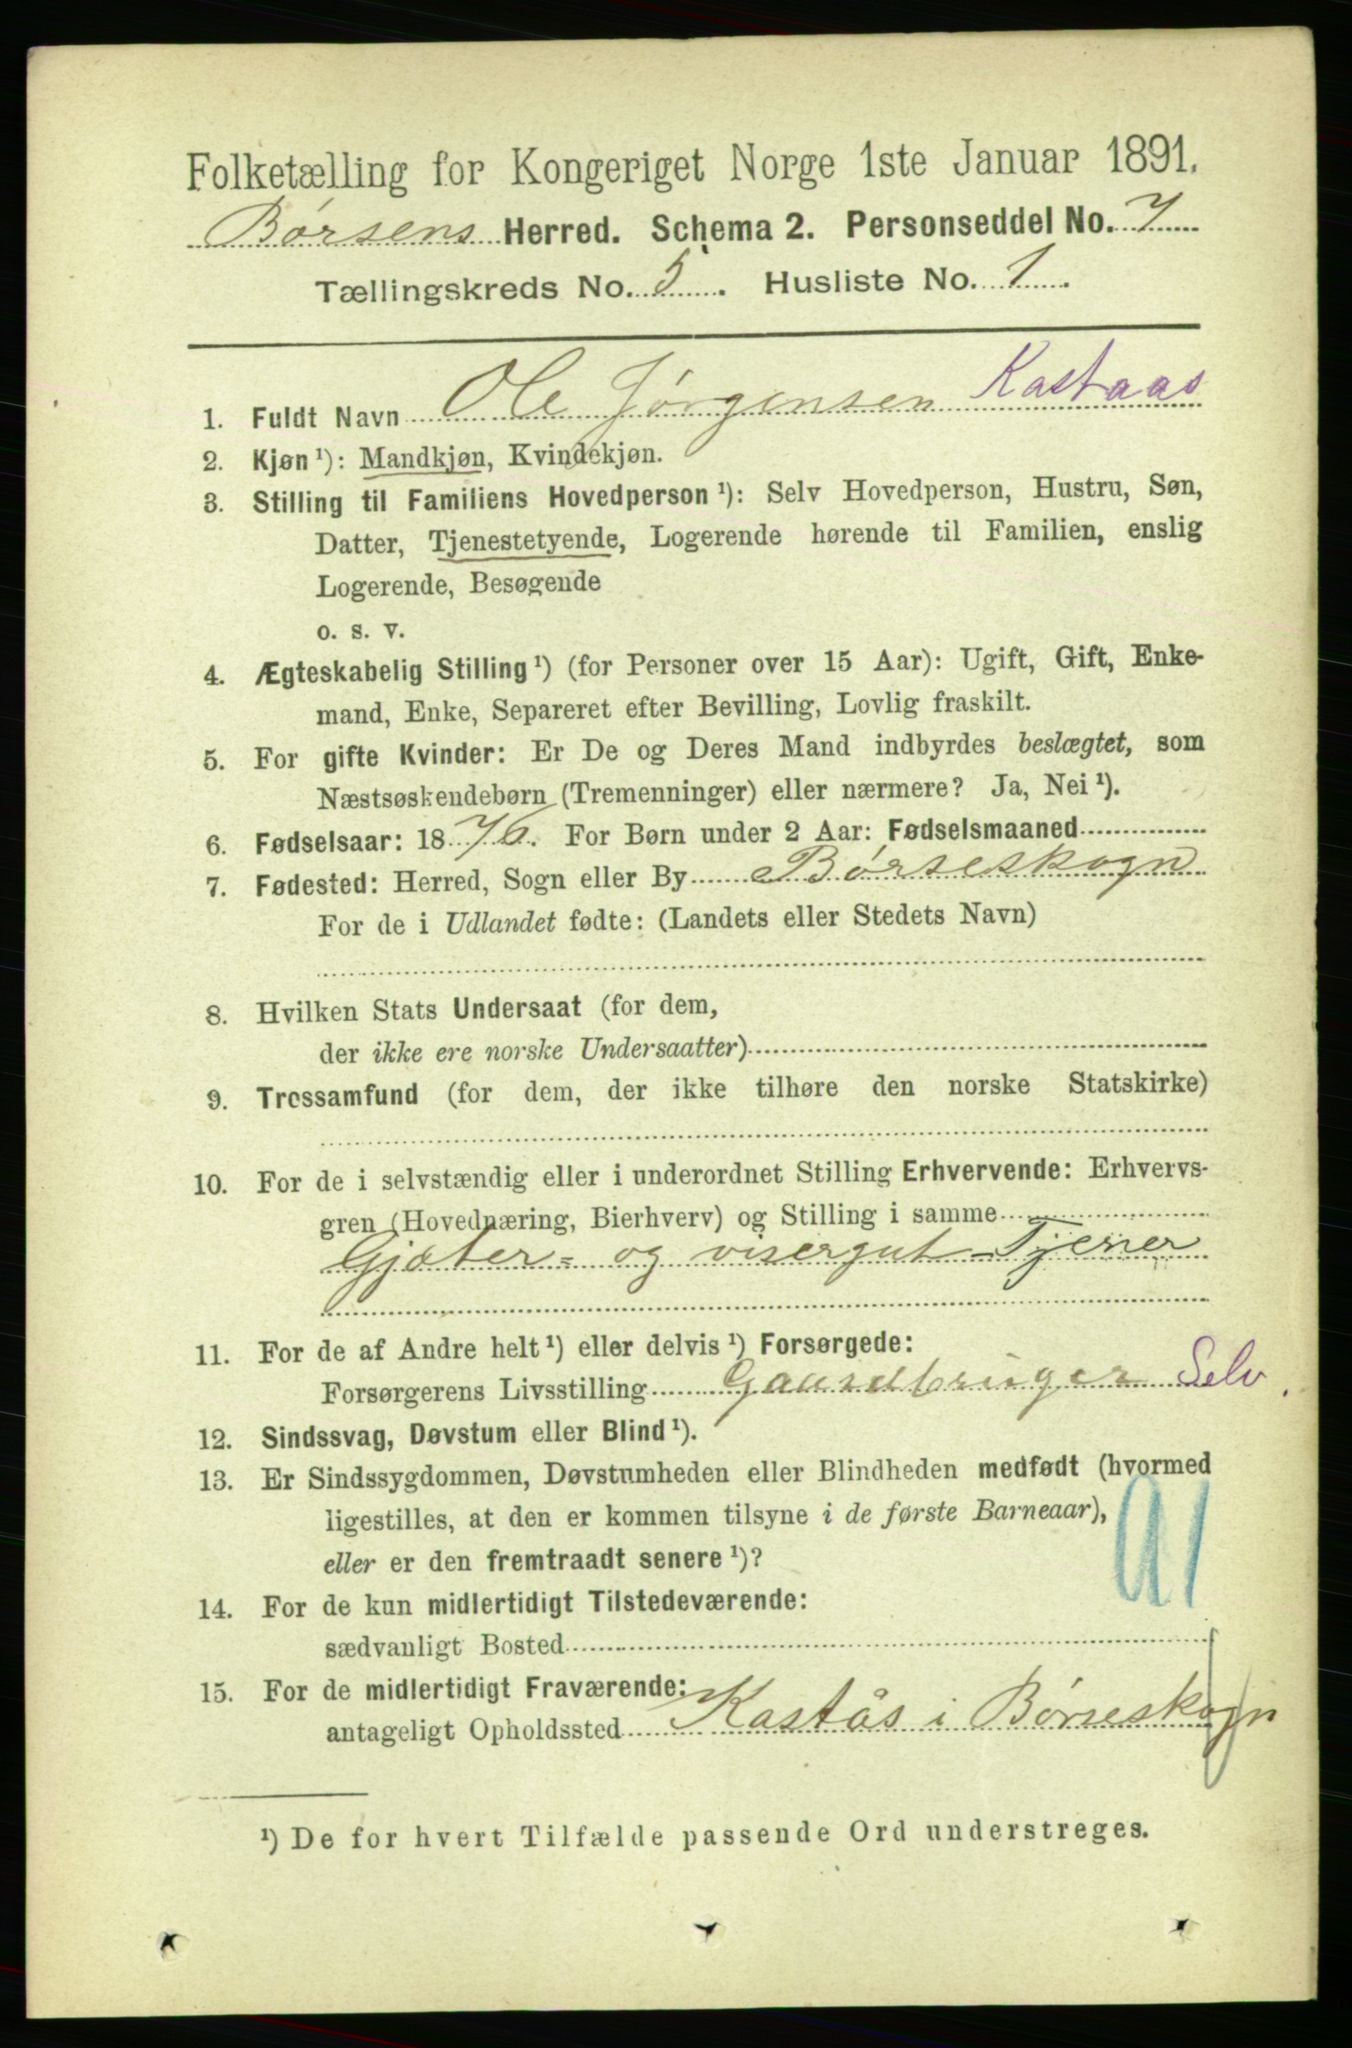 Folketælling for Kongeriget Norge 1ste Januar 1891.
Børsens Herred. Schema 2. Personseddel No. 7
Tællingskreds No. 5. Husliste No. 1.
1. Fuldt Navn Ole Jørgensen Kastaas
2. Kjøn ¹): Mandkjøn, Kvindekjøn.
3. Stilling til Familiens Hovedperson ¹): Selv Hovedperson, Hustru, Søn,
Datter, Tjenestetyende, Logerende hørende til Familien, enslig
Logerende, Besøgende
o. s. v.
4. Ægteskabelig Stilling ¹) (for Personer over 15 Aar): Ugift, Gift, Enke-
mand, Enke, Separeret efter Bevilling, Lovlig fraskilt.
5. For gifte Kvinder: Er De og Deres Mand indbyrdes beslægtet, som
Næstsøskendebørn (Tremenninger) eller nærmere? Ja, Nei ¹).
6. Fødselsaar: 1876. For Børn under 2 Aar: Fødselsmaaned
7. Fødested: Herred, Sogn eller By Børseskogn
For de i Udlandet fødte: (Landets eller Stedets Navn)
8. Hvilken Stats Undersaat (for dem,
der ikke ere norske Undersaatter)
9. Trossamfund (for dem, der ikke tilhøre den norske Statskirke)
10. For de i selvstændig eller i underordnet Stilling Erhvervende: Erhvervs-
gren (Hovednæring, Bierhverv) og Stilling i samme
Gjæter- og visergut Tjener
11. For de af Andre helt ¹) eller delvis ¹) Forsørgede:
Forsørgerens Livsstilling Gaardbruger Selv.
12. Sindssvag, Døvstum eller Blind ¹).
13. Er Sindssygdommen, Døvstumheden eller Blindheden medfødt (hvormed
ligestilles, at den er kommen tilsyne i de første Barneaar),
eller er den fremtraadt senere ¹)?
91
14. For de kun midlertidigt Tilstedeværende:
sædvanligt Bosted
15. For de midlertidigt Fraværende:
antageligt Opholdssted Kastås i Børseskogn
¹) De for hvert Tilfælde passende Ord understreges.